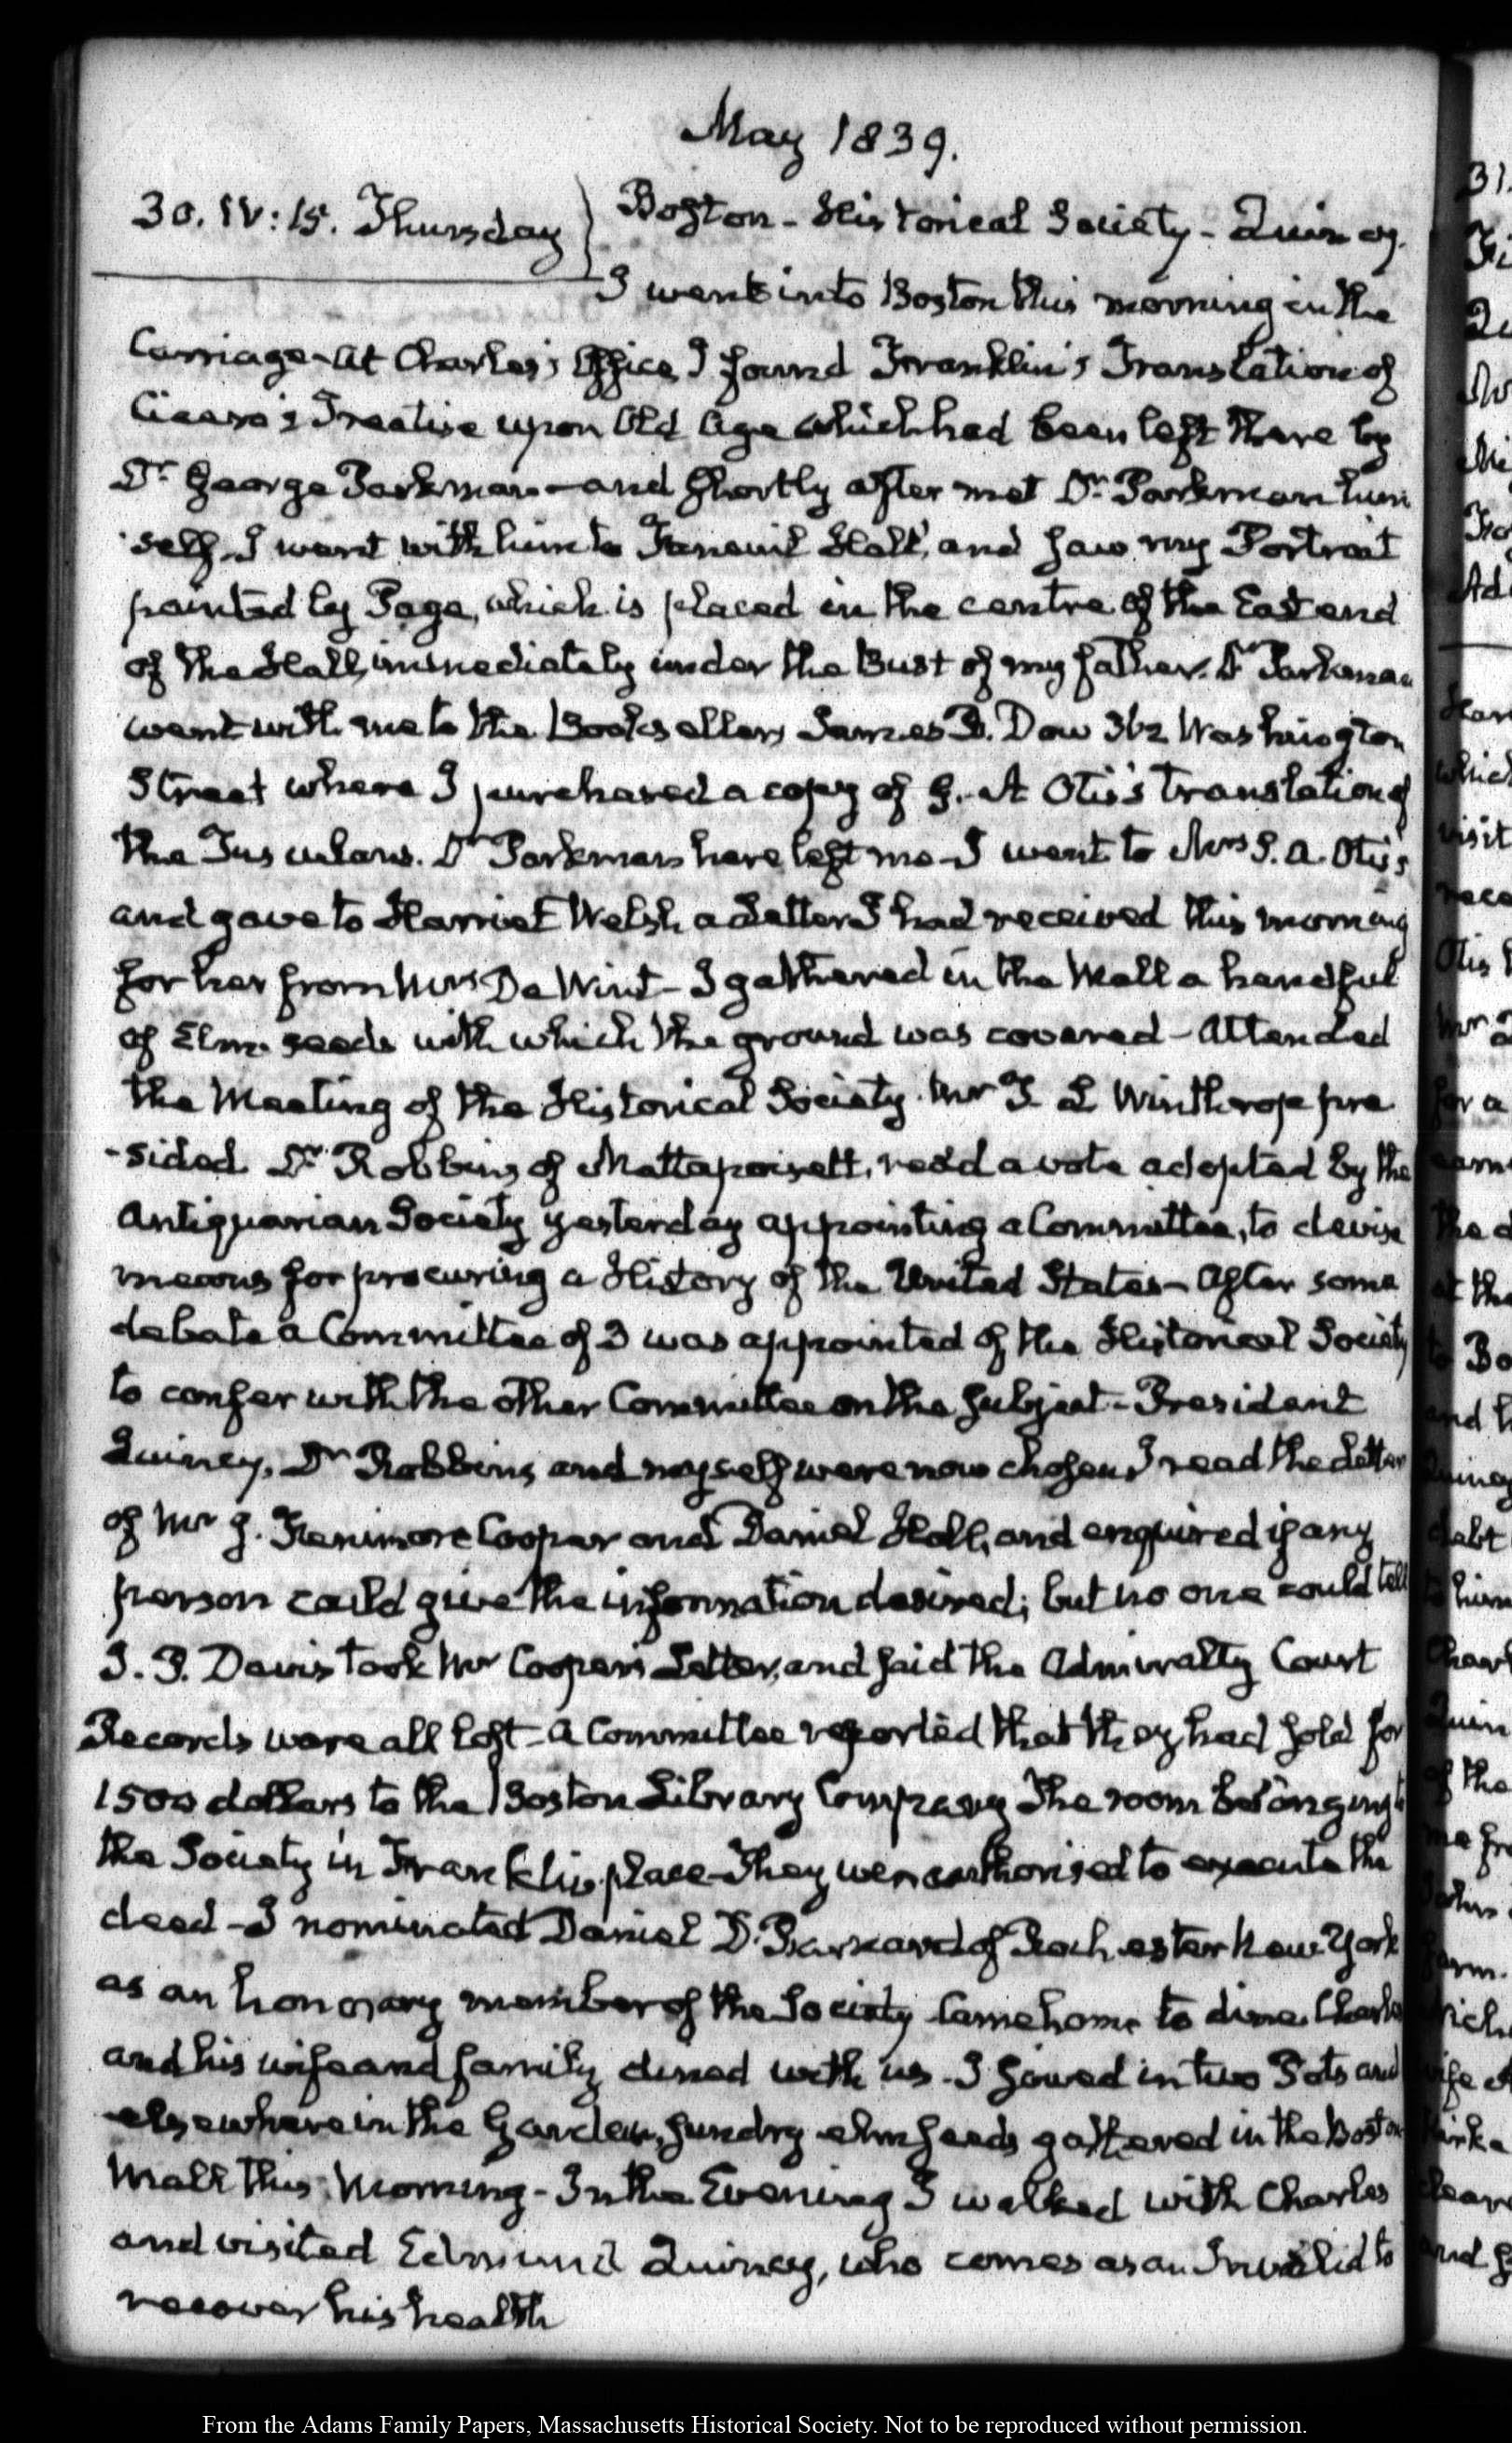 May 1839.
30. IV:15. Thursday } Boston - Historical Society - Quincy.
I went into Boston this morning in the
Carriage - At Charles's Office I found Franklin's Translation of
Cicero's Treatise upon Old Age which had been left there by
Dr. George Parkman - and shortly after met Dr. Parkman him
self. I went with him to Faneuil Hall, and saw my Portrait
painted by Page, which is placed in the centre of the East end
of the Hall, immediately under the Bust of my father. Dr Parkman
went with me to the Booksellers James B. Dow 362 Washington
Street where I purchased a copy of G. A Otis's translation of
the Tusculans. Dr Parkman here left me - I went to Mrs S. A. Otis's
and gave to Harriet Welsh a Letter I had received this morning
for her from Mrs De Wint - I gathered in the Mall a handful
of Elm seeds with which the ground was covered - Attended
the Meeting of the Historical Society. Mr T. L Winthrop pre
-sided. Dr Robbins of Mattapoisett, read a vote adopted by the
Antiquarian Society yesterday appointing a Committee, to devise
means for procuring a History of the United States - After some
debate a Committee of 3 was appointed of the Historical Society
to confer with the other Committee on the subject - President
Quincy, Dr Robbins, and myself were now chosen I read the Letter
of Mr J. Fenimore Cooper and Daniel Hall, and enquired if any
person could give the information desired; but no one could tell
J. P. Davis took Mr Cooper's Letter, and said the Admiralty Court
Records were all lost - A Committee reported that they had sold for
1500 dollars to the Boston Library Company the room belonging to
the Society in Franklin place - They were authorised to execute the
deed - I nominated Daniel D. Barnard of Rochester New York
as an honorary member of the Society Came home to dine. Charles
and his wife and family dined with us - I sowed in two Pots and
elsewhere in the Garden, sundry elm seeds gathered in the Boston
Mall this Morning - In the Evening I walked with Charles
and visited Edmund Quincy, who comes as an Invalid to
recover his health
From the Adams Family Papers, Massachusetts Historical Society. Not to be reproduced without permission.